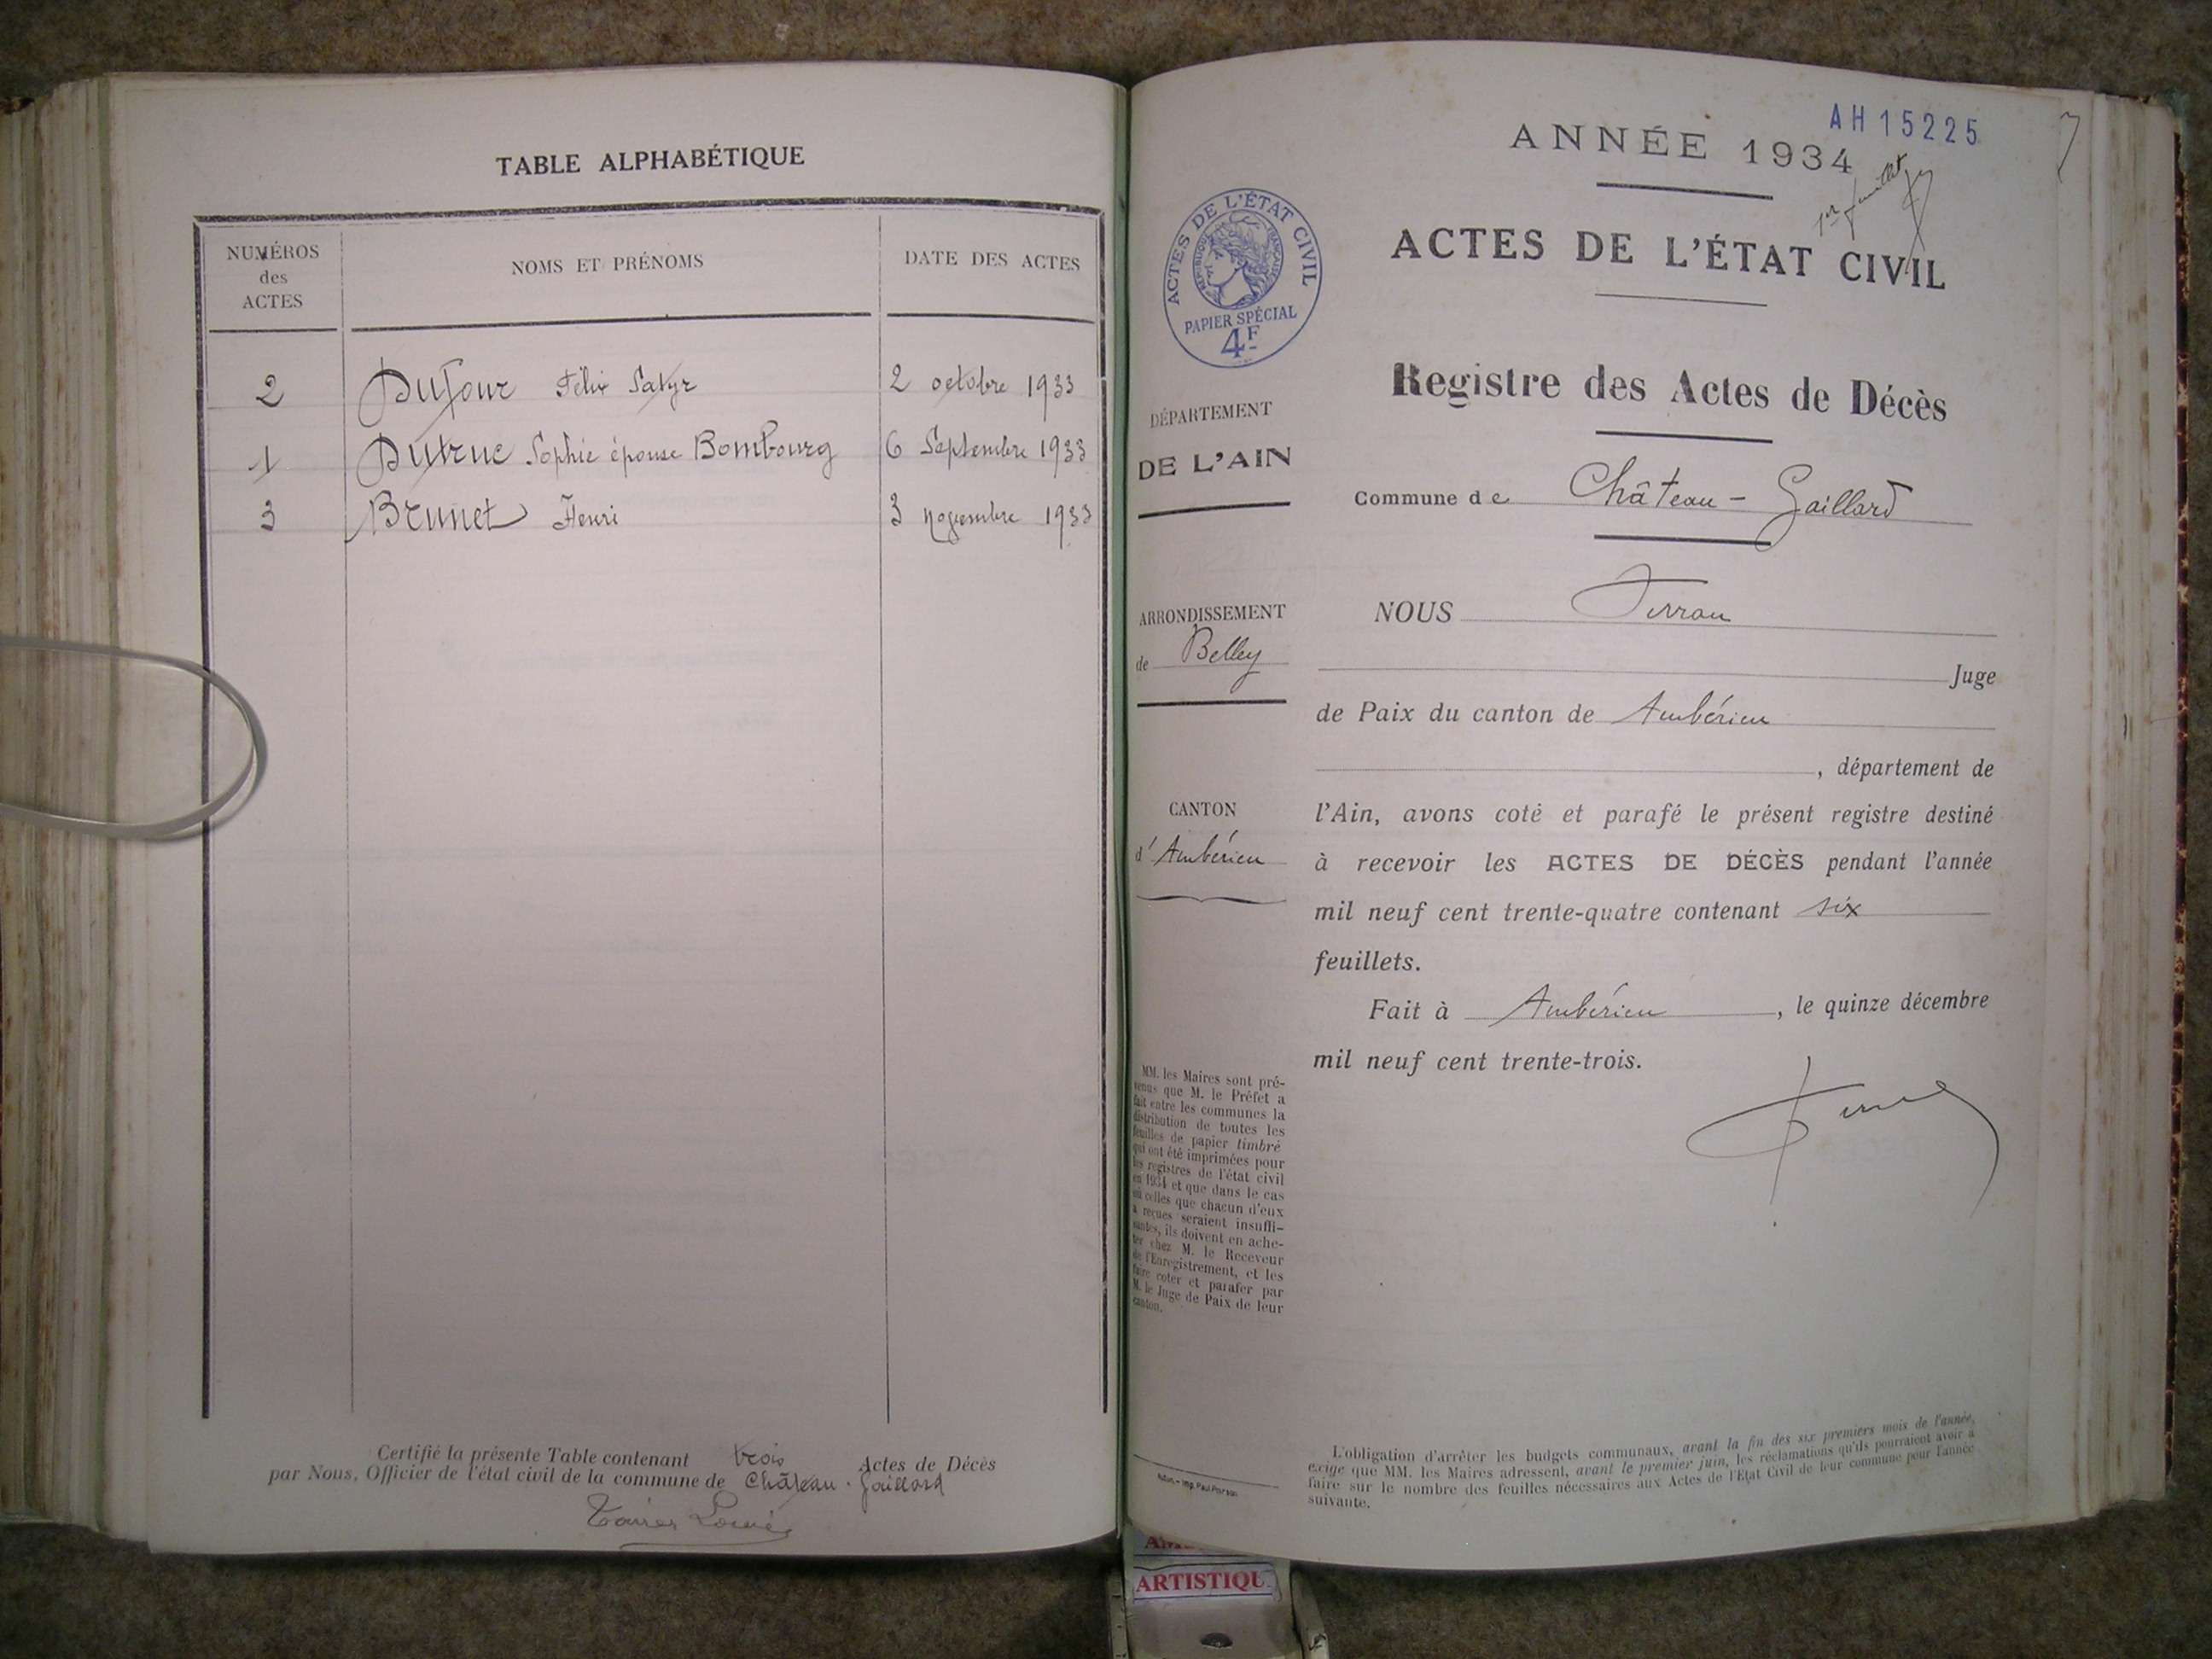 TABLE ALPHABÉTIQUE
NUMÉROS
des
ACTES
NOMS ET PRÉNOMS
DATE DES ACTES
2 Dufour Félix Satyr 2 octobre 1933
1 Dutruc Sophie épouse Bombourg 6 Septembre 1933
3 Brunet Henri 3 novembre 1933
Certifié la présente Table contenant trois Actes de Décès
par Nous, Officier de l'état civil de la commune de Château-Gaillard
AH 15225
ANNÉE 1934
1er feuillet
ACTES DE L'ÉTAT CIVIL
ACTES DE L'ÉTAT CIVIL
RÉPUBLIQUE FRANÇAISE
PAPIER SPÉCIAL
4F
Registre des Actes de Décès
DÉPARTEMENT
DE L'AIN
Commune de Château-Gaillard
ARRONDISSEMENT
de Belley
NOUS Ferran
Juge
de Paix du canton de Ambérieu
, département de
CANTON
d'Ambérieu
l'Ain, avons coté et parafé le présent registre destiné
à recevoir les ACTES DE DÉCÈS pendant l'année
mil neuf cent trente-quatre contenant six
feuillets.
Fait à Ambérieu, le quinze décembre
mil neuf cent trente-trois.
MM. les Maires sont pré-
venus que M. le Préfet a
fait entre les communes la
distribution de toutes les
feuilles de papier timbré
qui ont été imprimées pour
les registres de l'état civil
en 1934 et que dans le cas
où celles que chacun d'eux
a reçues seraient insuffi-
santes, ils doivent en ache-
ter chez M. le Receveur
de l'Enregistrement, et les
faire coter et parafer par
M. le Juge de Paix de leur
canton.
L'obligation d'arrêter les budgets communaux, avant la fin des six premiers mois de l'année,
exige que MM. les Maires adressent, avant le premier juin, les réclamations qu'ils pourraient avoir à
faire sur le nombre des feuilles nécessaires aux Actes de l'Etat Civil de leur commune pour l'année
suivante.
ARTISTIQU